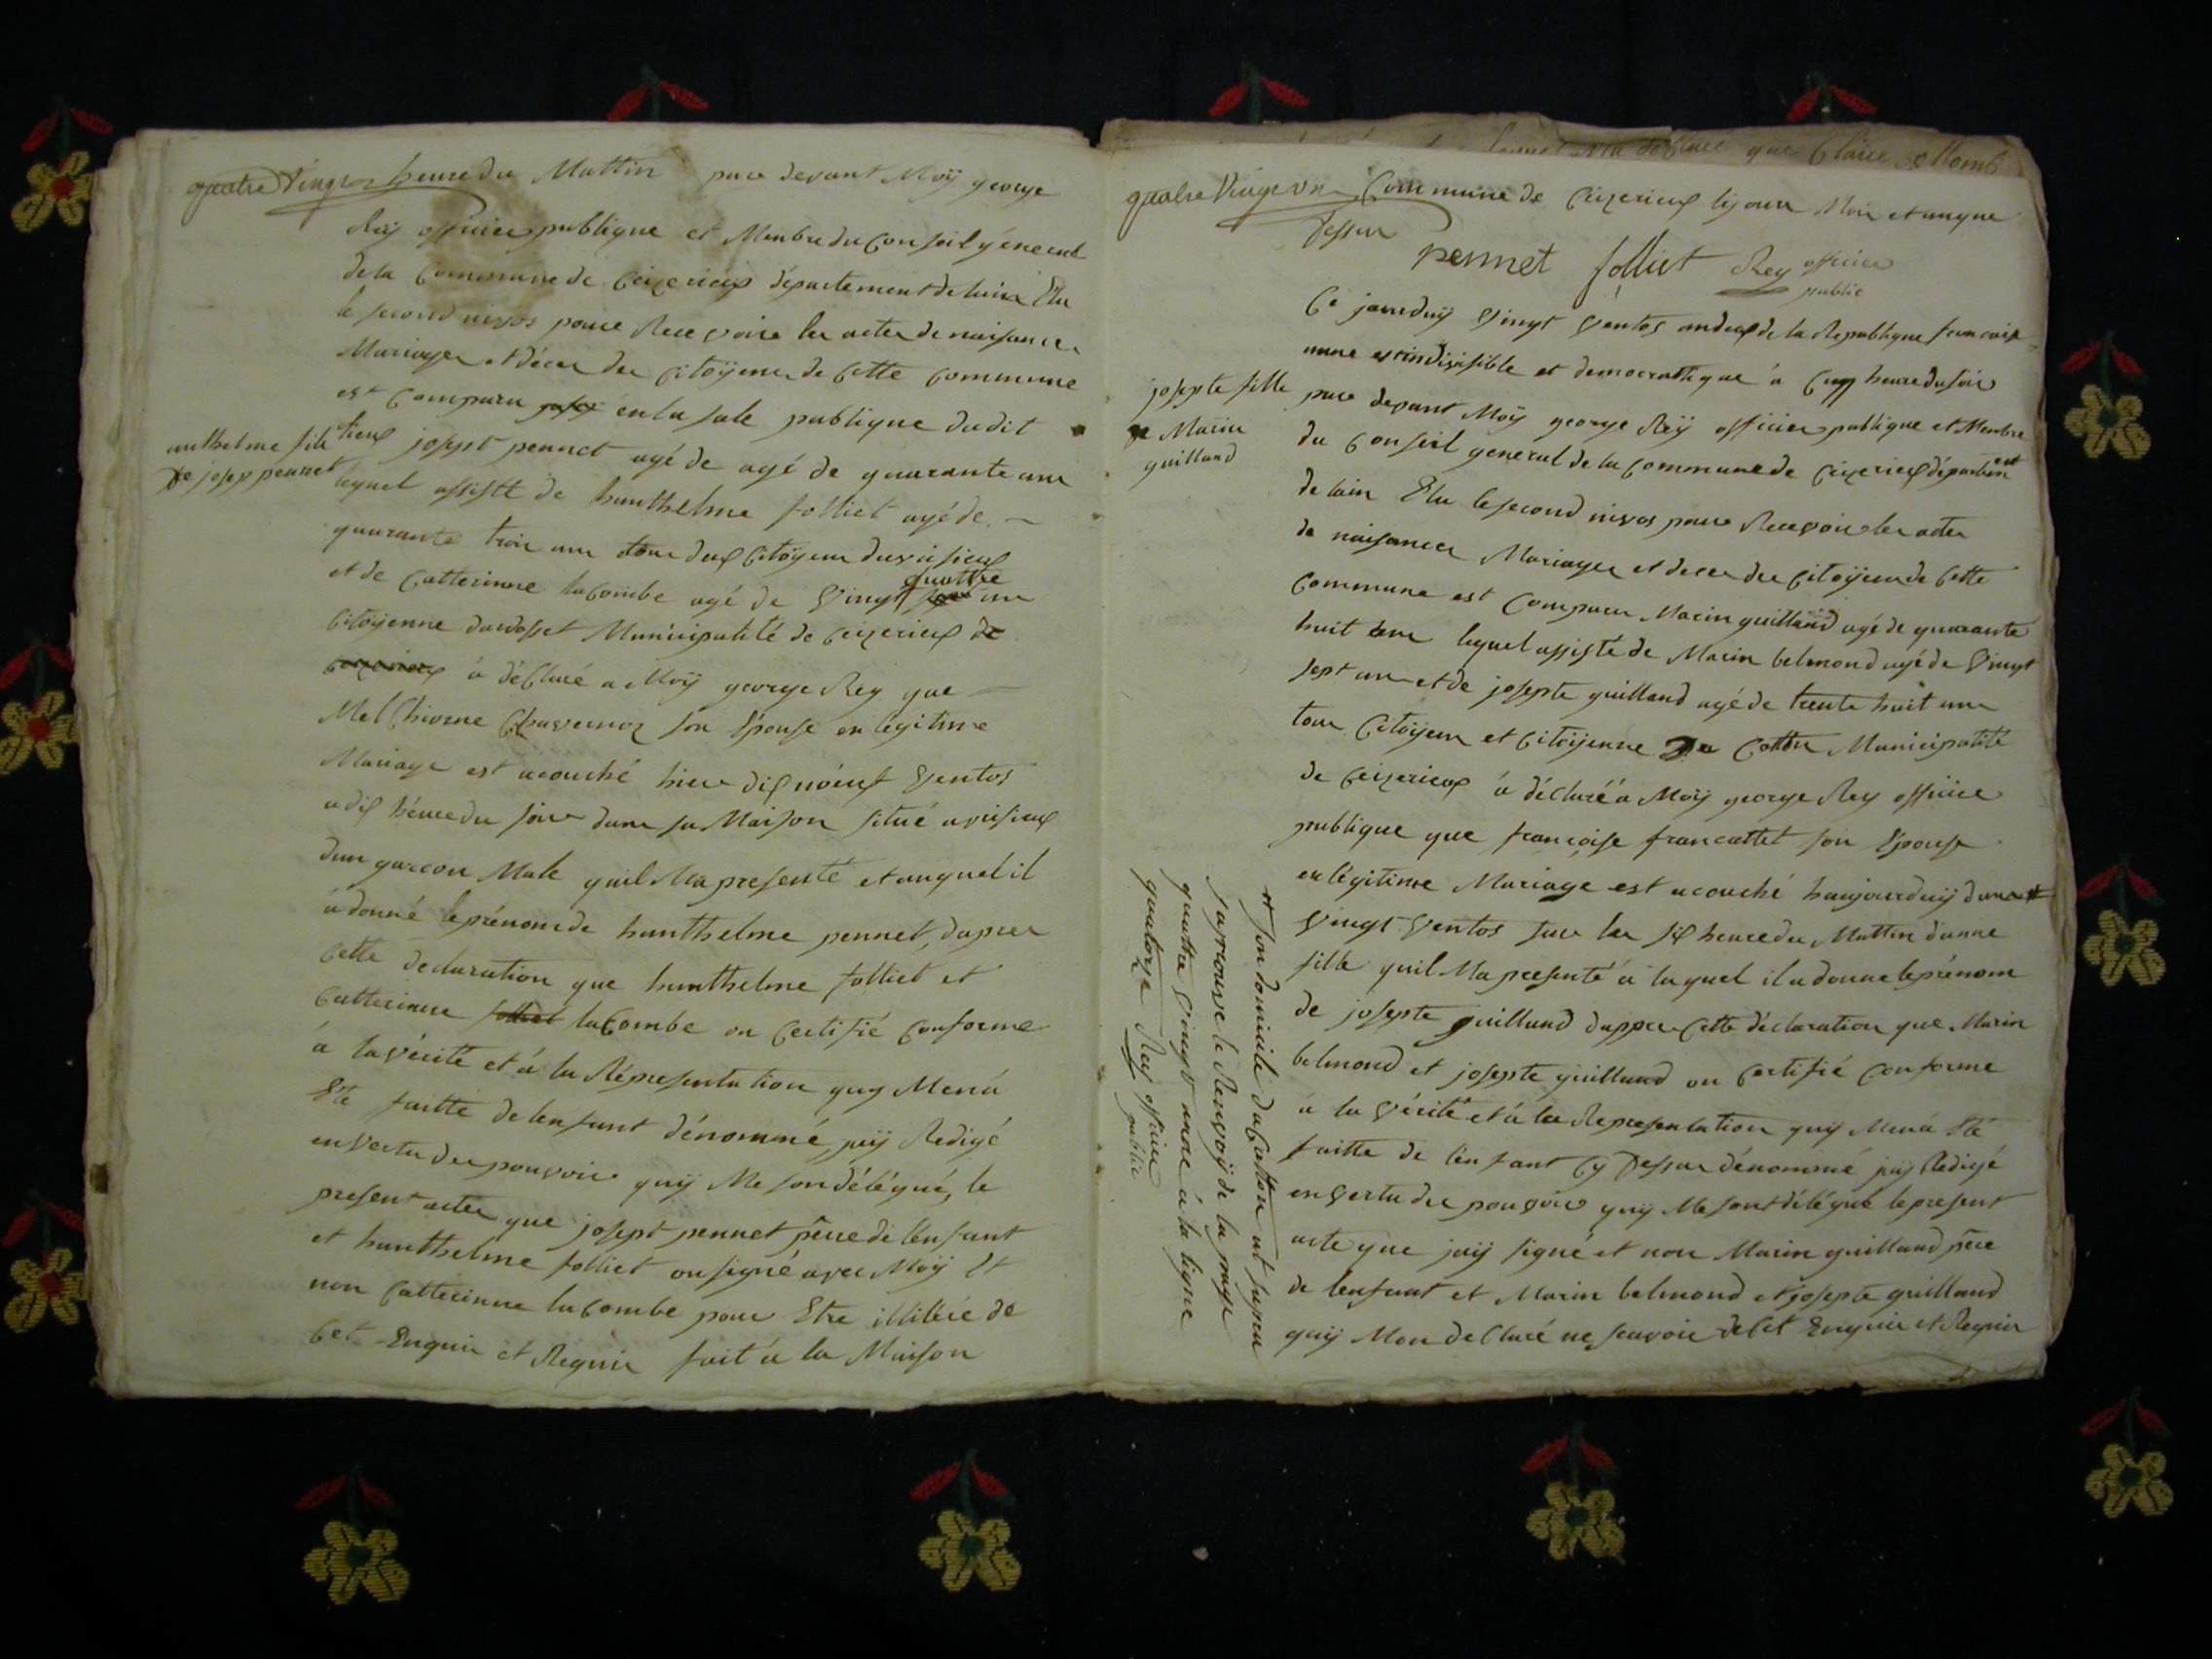 quatre vingts heure du Mattin pare devant Moÿ george
Reÿ officier publique et Menbre du Conseil géneral
de la Commune de Ceizerieux département de lain Elu
le second nivos pour Recevoire les actes de naisances
Mariages et déces des Citoÿens de Cette Commune
est Comparu en la sale publique dudit
lieux josept pennet agé de agé de quarante ans
anthelme fils
de josep pennet
lequel assisté de hanthelme folliet agé de
quarante trois ans tous deux Citoÿens
et de Catterinne lacombe agé de vingt quattre ans
Citoÿenne Municipalité de Ceizerieux de
Ceizerieux á déClaré a Moÿ george Rey que
MelChionne son Epouse en légitime
Mariage est acouché hier dix nóeuf ventos
a dix héure du soir dans sa Maison situé a
dun garcon Male quil Ma presenté et auquel il
á donné le prénom de hanthelme pennet, dapres
Cette declaration que hanthelme folliet et
Catterinne folliet laCombe on Certifié Conforme
á la vérité et á la Répresentation quy Mená
Eté faitte de lenfant dénommé, jaÿ Redigé
en vertu des pouvoirs quÿ Me son délégué, le
present actes que josept pennet pére de lénfant
et hanthelme folliet on signé avec Moÿ Et
non Catterinne laCombe pour Etre illitéré de
Cet Enquis et Requis fait á la Maison
quatre vingt un Commune de Ceizerieux les jour Mois et an que
dessus
pennet folliet Rey officier
public
Ce jourduÿ vingt ventos an deux de la Republique francaise
unne et indivisible et democratique á Cinq heure du soir
josepte fille
de Marin
guilland
pare devant Moÿ george Reÿ officier publique et Menbre
du Conseil general de la Commune de Ceizerieux département
de lain Elu le second nivos pour Recevoir les actes
de naisances Mariages et deces des Citoÿens de Cette
Commune est Comparu Marin guilland agé de quarante
huit ans lequel assisté de Marin belmond agé de vingt
sept ans et de josepte guilland agé de trente huit ans
tous Citoÿens et Citoÿenne de Municipalité
de Ceizerieux á déclaré á Moÿ george Rey officier
publique que francoise francattet son Epouse
en légitime Mariage est acouché haujourduÿ dans
vingt ventos sur les six heure du Mattin dunne
fille quil Ma presenté á laquel il a donné le prénom
de josepte guilland dappres Cette déclaration que Marin
belmond et josepte guilland on Certifié Conforme
á la vérité et á la Representation quÿ Mená Eté
faitte de lénfant Cÿ dessus dénommé jaÿ Redigé
en vertu des pouvoirs quÿ Me sont délégué le present
acte que jaÿ signé et non Marin guilland pére
de lenfant et Marin belmond et josepte guilland
quÿ Mon deClaré ne scavoir de Cet Enquis et Requis
et son domicile
le Renvoÿ de la page
quattre vingt unne á la ligne
quatorze Rey officier
public